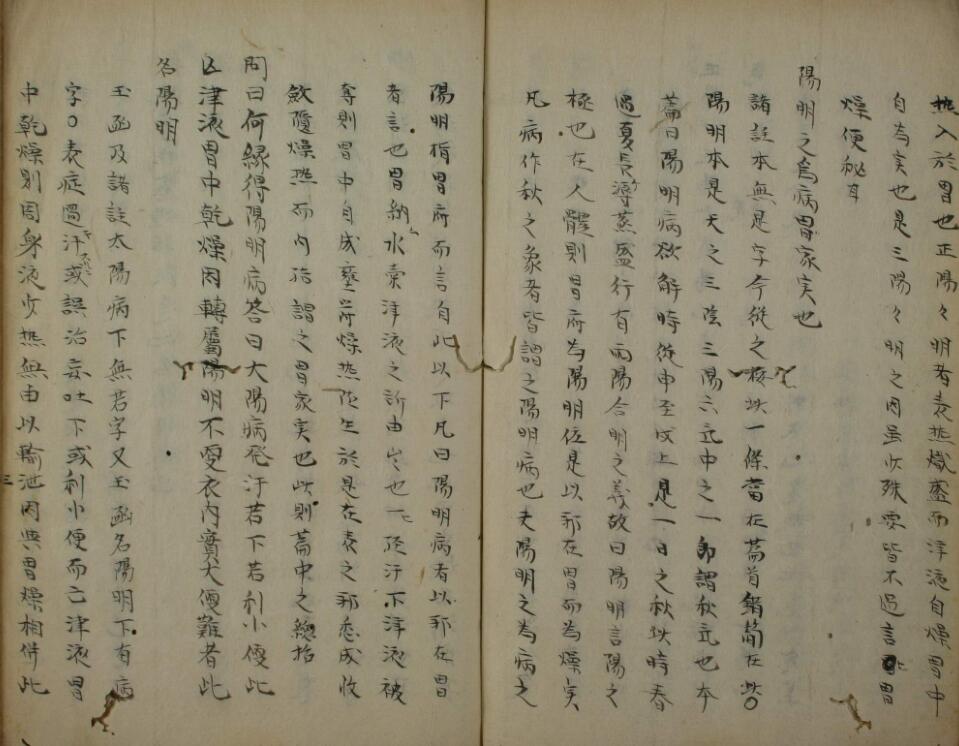 热入於胃也正陽々明者表热熾盛而津液自燥胃中
自為实也是三陽々明之因虽少殊要皆不過言胃
燥便秘耳
陽明之為病胃家实也
諸註本無是字今從之按此一條當在篇首錯簡在此〇
陽明本是天之三陰三陽六气中之一即謂秋气也本
篇曰陽明病欲解時從申至戌上是一日之秋此時春
過夏長溽蒸盛行有兩陽合明之義故曰陽明言陽之
極也在人體則胃府為陽明位是以邪在胃而為燥实
凡病作秋之象者皆謂之陽明病也夫陽明之為病之
陽明指胃府而言自此以下凡曰陽明病者以邪在胃
者言也胃納水槖津液之所由生也一経汗下津液被
奪則胃中自成壅所燥热従生於是在表之邪悉成收
斂隨燥热而内結謂之胃家实也此則篇中之總括
問曰何緣得陽明病答曰太陽病発汗若下若利小便此
亡津液胃中乾燥因轉屬陽明不更衣内實大便難者此
名陽明
玉函及諸註太陽病下無若字又玉函名陽明下有病
字〇表症過汗或誤治妄吐下或利小便而亡津液胃
中乾燥則周身液少热無由以輸泄因與胃燥相併此
三